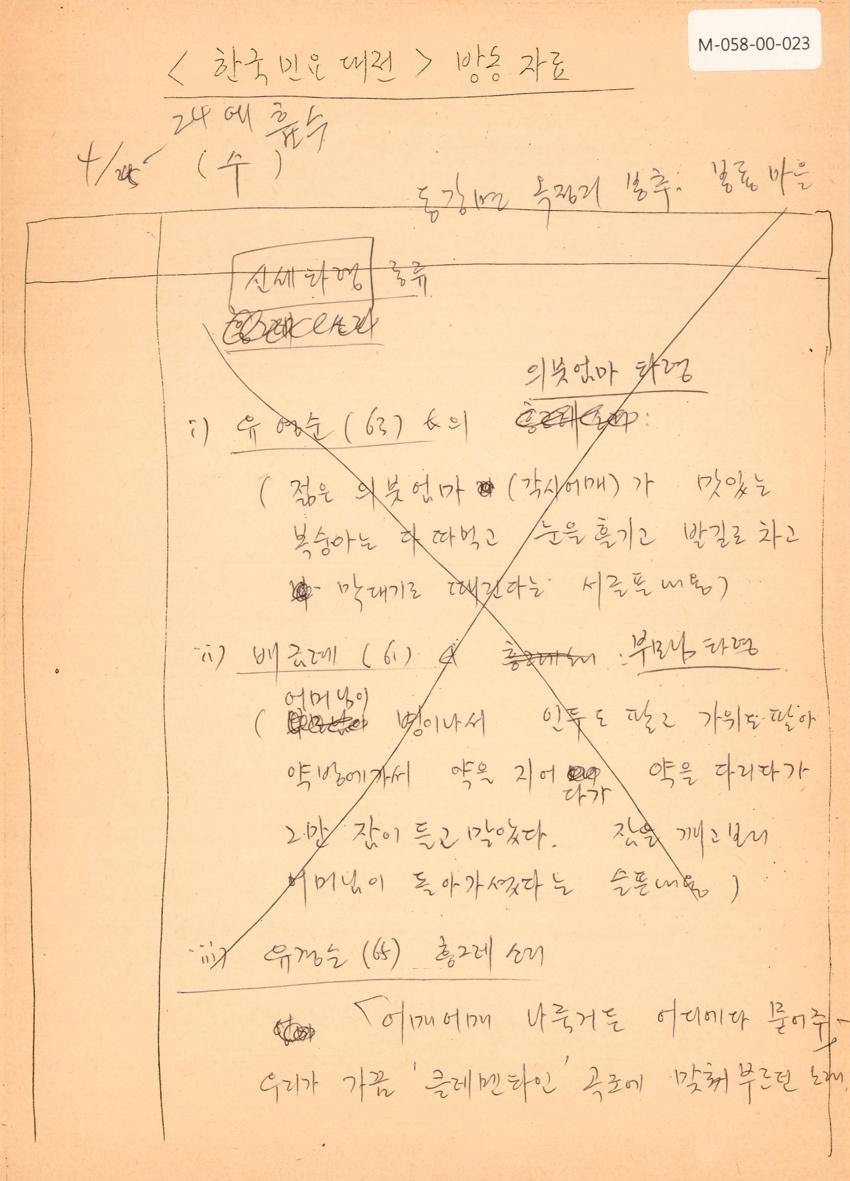 M-058-00-023
< 한국민요대전 > 방송 자료
24에 흡수
4/25 (수)
동강면 옥정리 봉추: 봉룡 마을
신세타령 종류
의붓엄마 타령
i) 유영순 (63) 의
( 젊은 의붓엄마 (각시어매)가 맛있는
복숭아는 다 따먹고 눈을 흘기고 발길로 차고
막대기로 때린다는 서글픈 내용)
ii) 배금례 (61) 흥그레 소리 : 부모님 타령
어머님이
( 병이나서 인두도 팔고 가위도 팔아
약방에가서 약을 지어 약을 다리다가
다가
그만 잠이 들고 말았다. 잠을 깨고보니
어머님이 돌아가셨다는 슬픈내용 )
iii) 유경늠 (65) 흥그레 소리
<어매어매 나죽거든 어디에다 묻어주
우리가 가끔 '클레멘타인' 곡조에 맞춰 부르던 노래